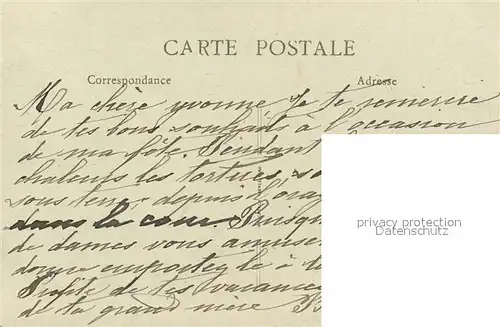 CARTE POSTALE
Correspondance
Adresse
Ma chère yvonne Je te remercie
de tes bons souhaits à l'occasion
de ma fête. Pendant
chaleurs les tortues
sous terre depuis
dans la cour. Puisqu
de dames vous amuse
donc emporte le à
Profite de tes vacances
de ta grand mère
privacy protection
Datenschutz